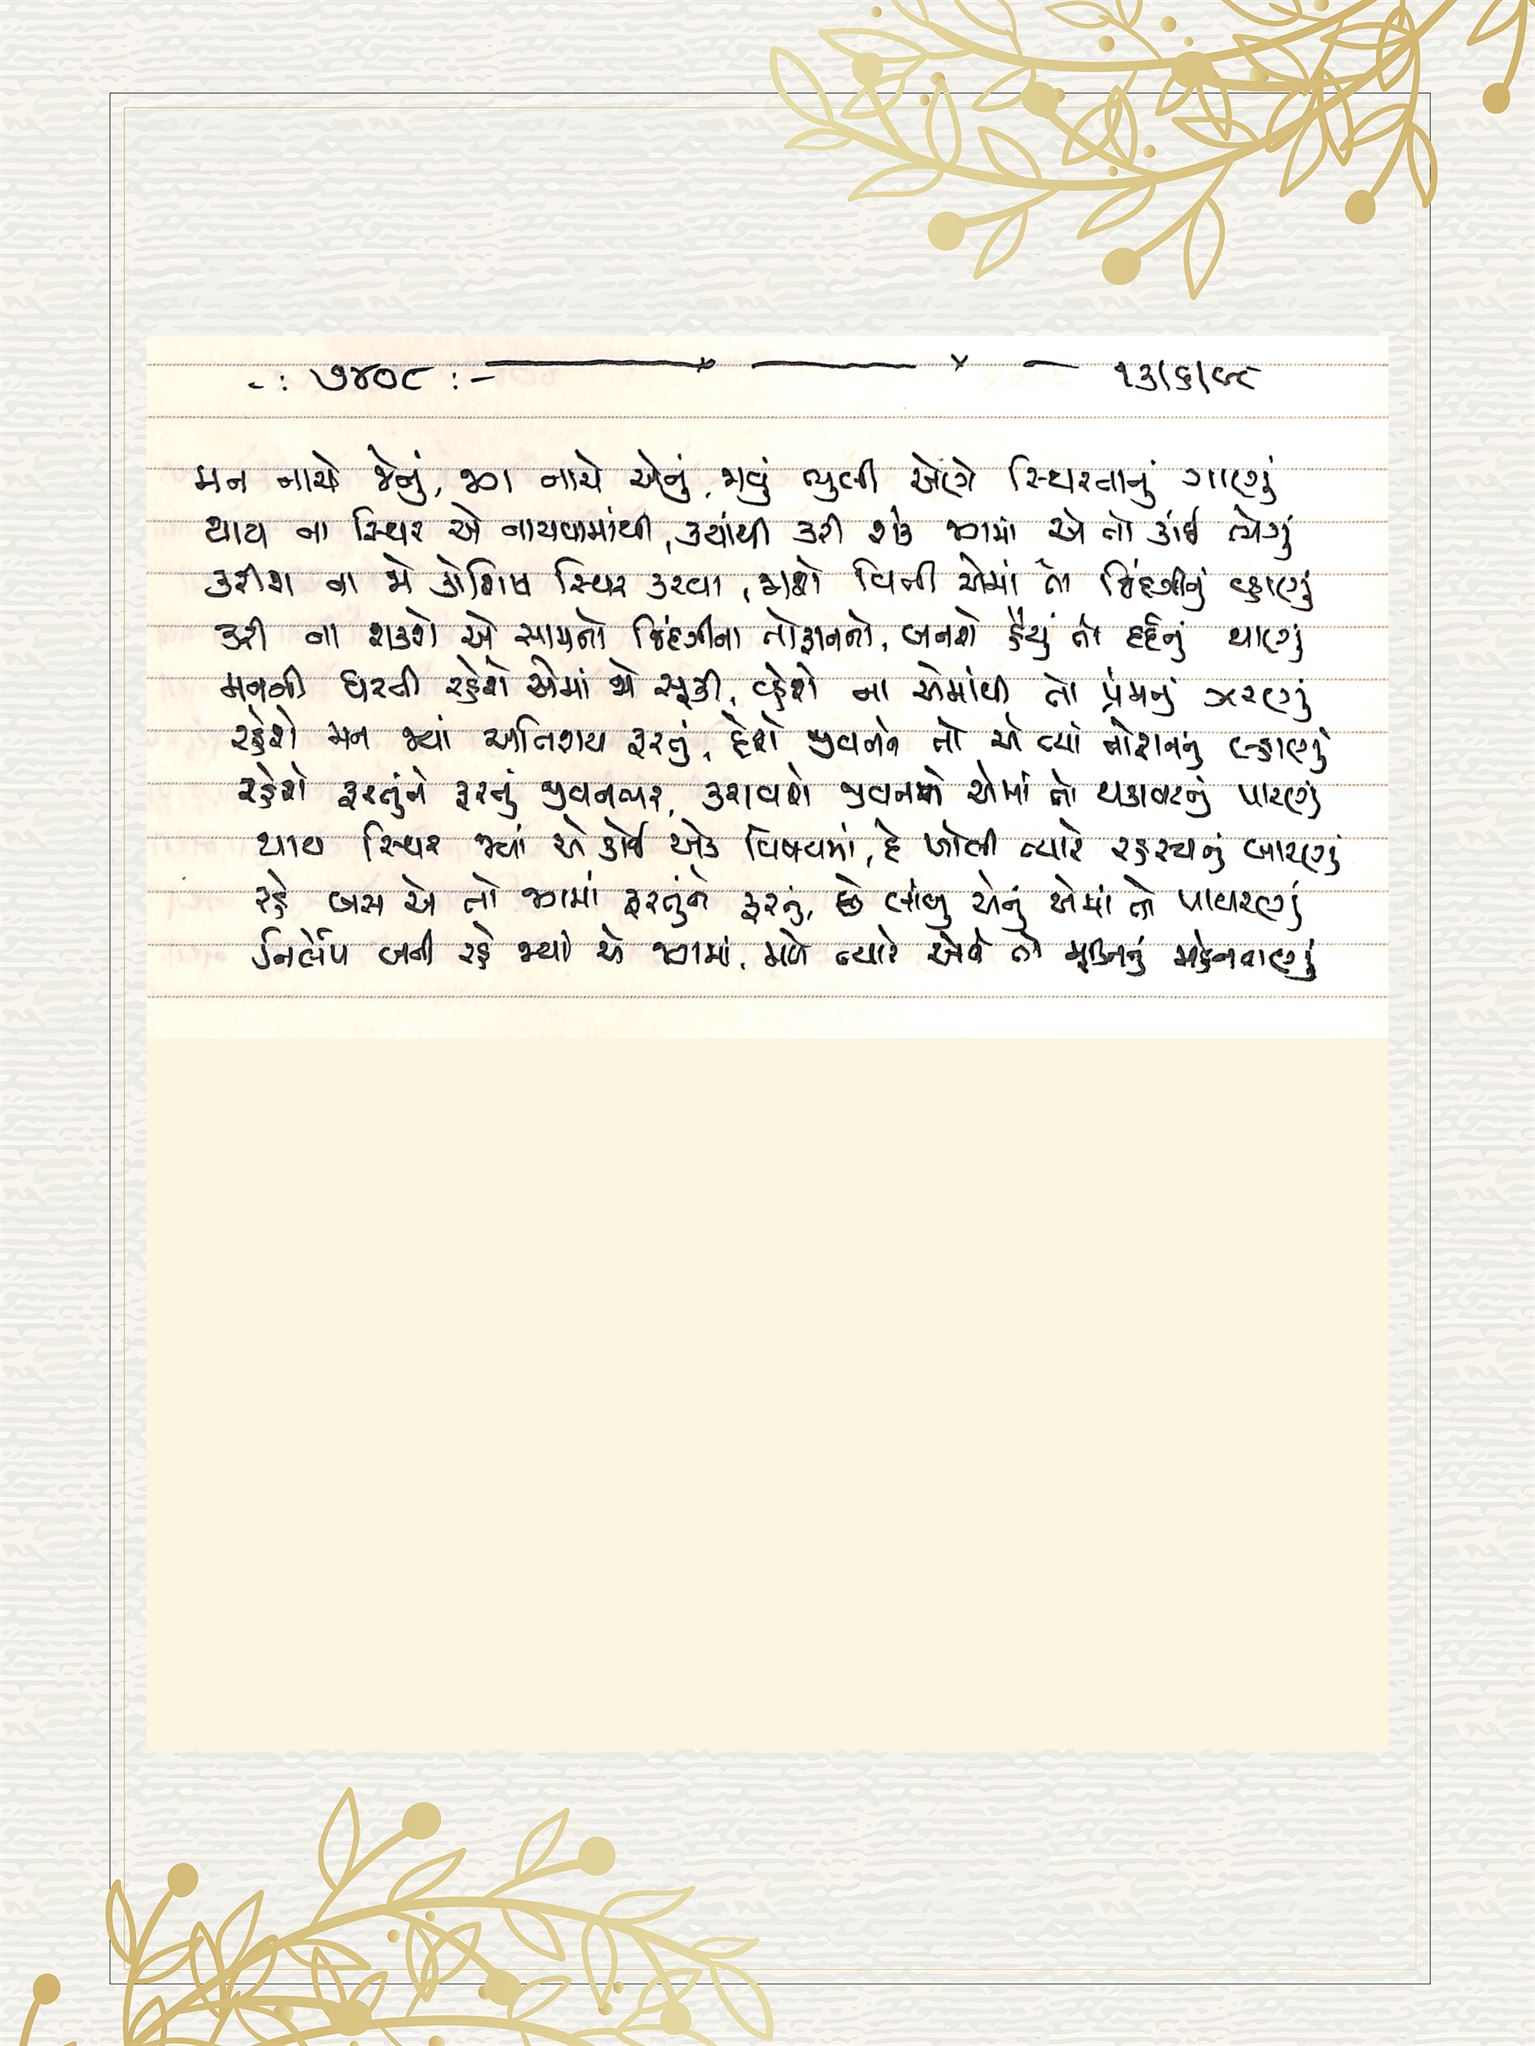 -: ૭૪૦૮ :- ૧૩/૬/૯૮
મન નાચે જેનું, જગ નાચે એનું, જાવું ભુલી એણે સ્થિરતાનું ગાણું
થાય ના સ્થિર એ નાચવામાંથી, ક્યાંથી કરી શકે જગમાં એ તો કાંઈ
કરીશ ના જો કોશિષ સ્થિર કરવા, જાશે વિતી એમાં તો જિંદગીનું વ્હાણું
કરી ના શકશે એ સામનો જિંદગીના તોફાનનો, બનશે હૈયું તો દર્દનું થાણું
મનની ધરતી રહેશે એમાં જો સૂકી, વ્હેશે ના એમાંથી તો પ્રેમનું ઝરણું
રહેશે મન જ્યાં અતિશય ફરતું, દેશે જીવનને તો એ ત્યાં નોશનનું લ્હાણું
રહેશે ફરતુંને ફરતું જીવનભર, કરાવશે જીવનને એમાં તો થકાવટનું પારણું
થાય સ્થિર જ્યાં એ કોઈ એક વિષયમાં, દે ખોલી ત્યારે રહસ્યનું બારણું
રહે બસ એ તો જગમાં ફરતુંને ફરતું, છે લાંબુ એનું એમાં તો પાથરણું
નિર્લેપ બની રહે જ્યાં એ જગમાં, મળે ત્યારે એને તો મુક્તિનું મહેનતાણું